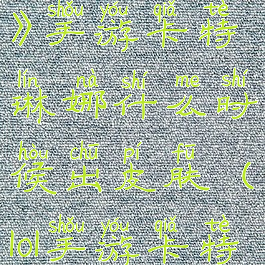 shǒu yóu qiǎ tè
》手游卡特
lín nà shí me shí
琳娜什么时
hòu chū pí fū
候出皮肤（
shǒu yóu qiǎ tè
lol手游卡特